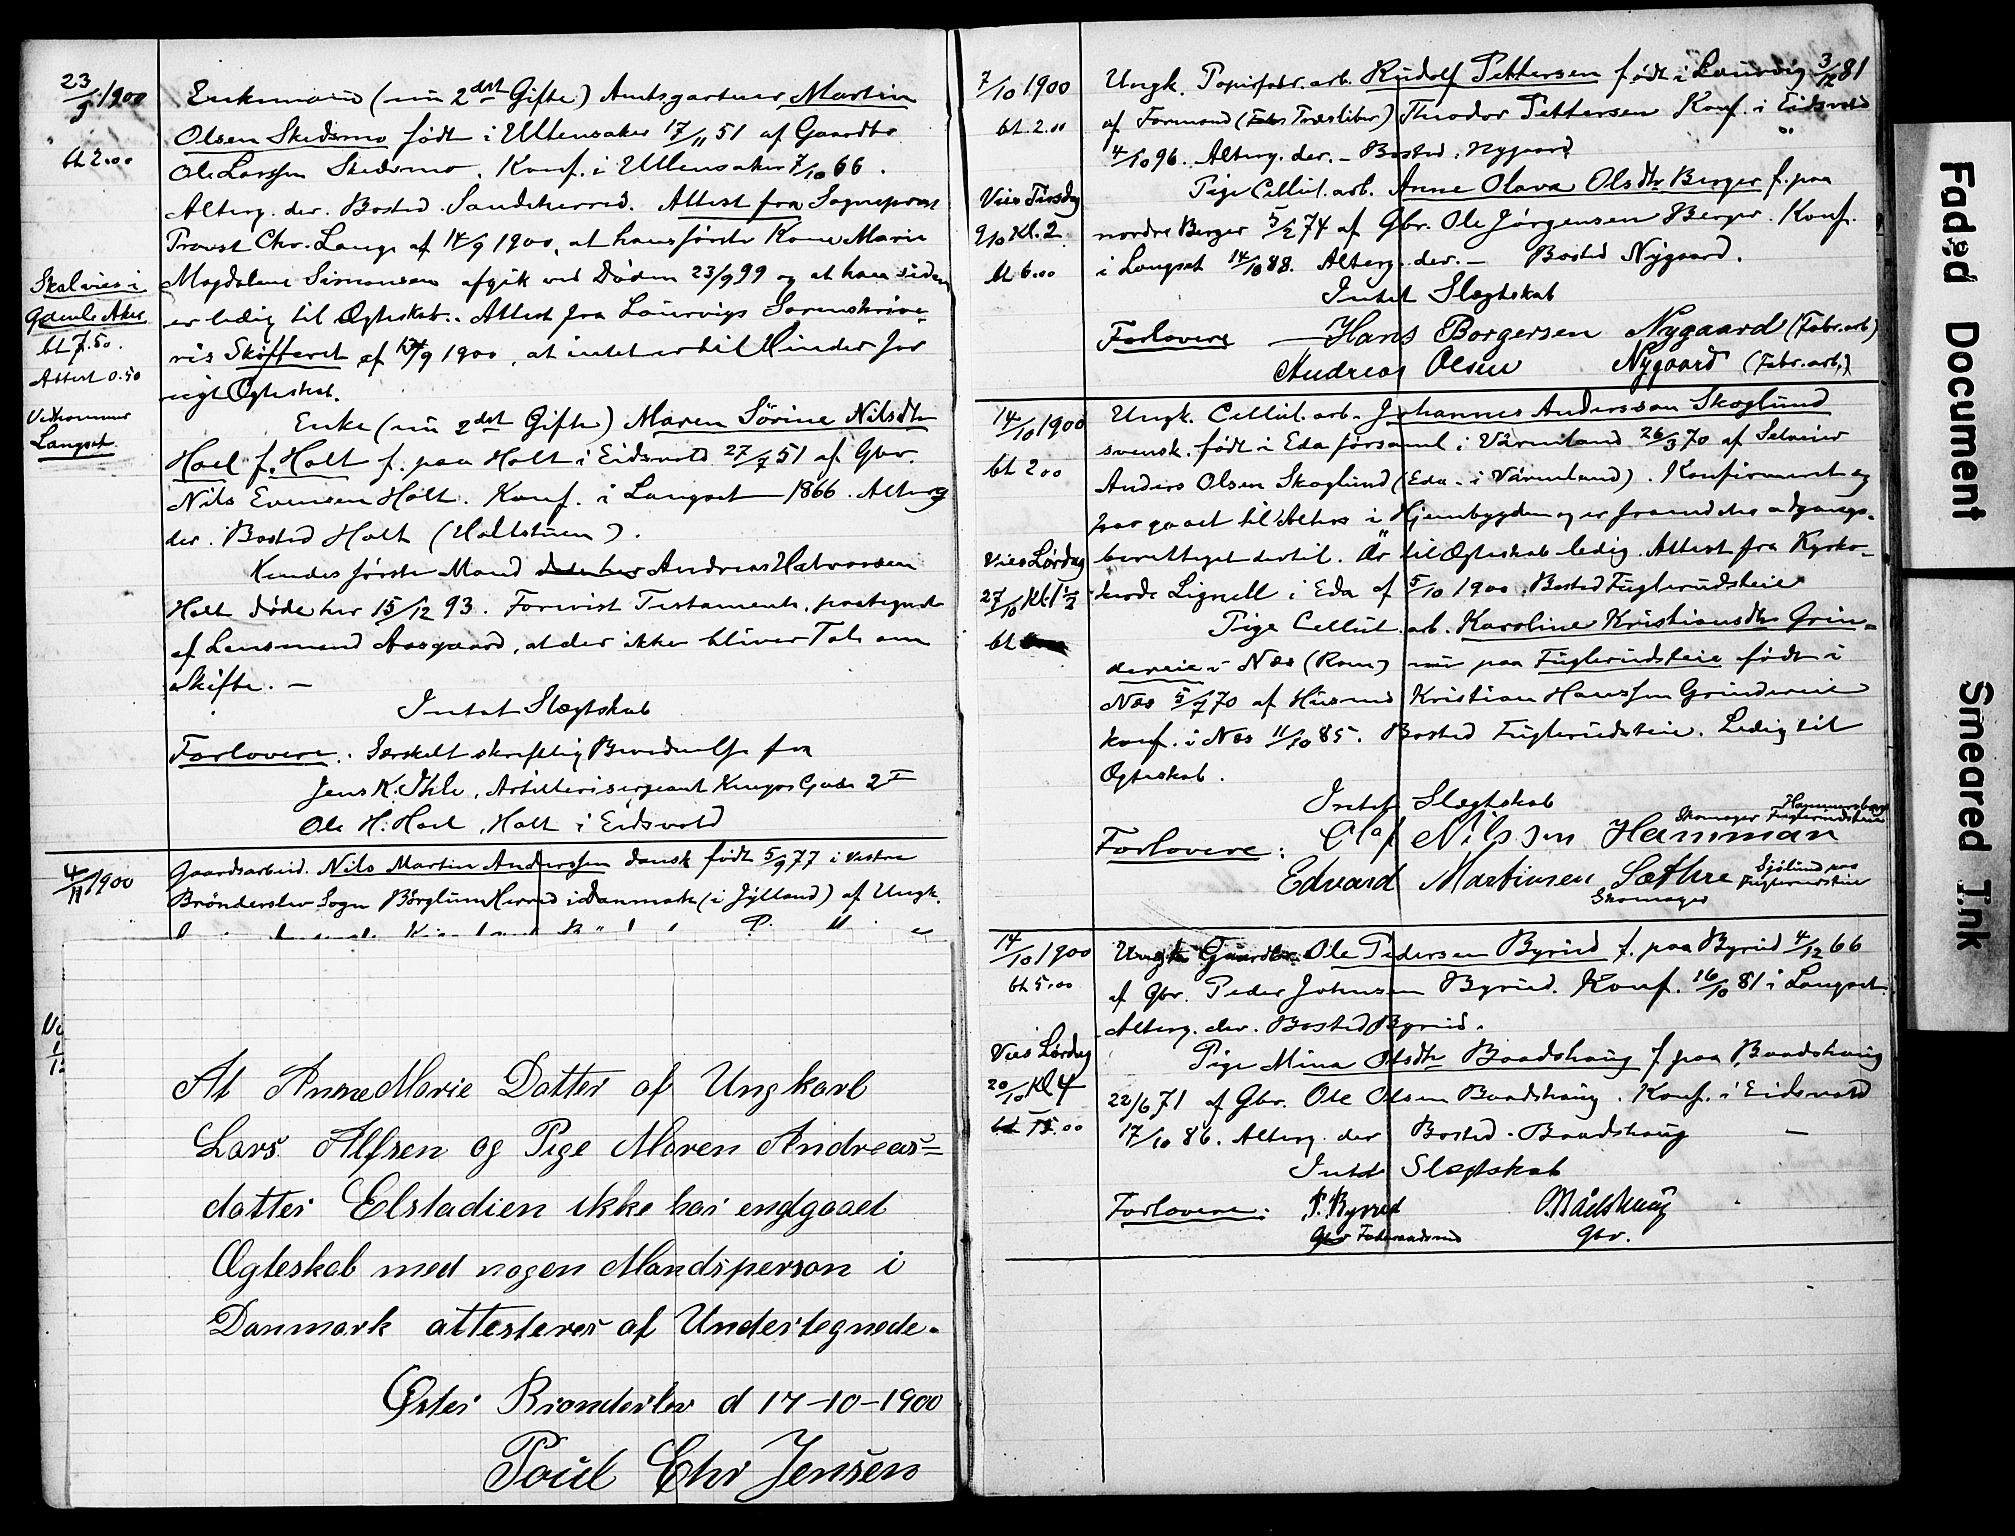 23/9 1900
bt 2.00
Skal vies i
Gamle Aker
bt 7.50.
Attest 0.50
Vedkommer
Langset
Enkemand (nu 2det Gifte) Amtsgartner Martin
Olsen Skedsmo født i Ullensaker 17/11 51 af Gaardbr
Ole Larssen Skedsmo. Konf. i Ullensaker 7/10 66.
Alterg. der. Bosted Sandeherred. Attest fra Sogneprest
Provst Chr. Lange af 14/9 1900, at hans første Kone Marie
Magdalene Simonsen afgik ved Døden 23/9 99 og at han siden
er ledig til Ægteskab. Attest fra Laurvigs Sorenskrive-
ris Skifteret af 13/9 1900, at intet er til Hinder for
nigt Ægteskab.
Enke (nu 2det Gifte) Maren Sørine Nilsdtr
Hoel f. Holt f. paa Holt i Eidsvold 27/7 51 af Gbr.
Nils Evensen Holt. Konf. i Langset 1866. Alterg
der. Bosted Holt (Holtstuen).
Hendes første Mand Andreas Halvorsen
Holt døde her 15/12 93. Forevist Testamente, paategnet
af Lensmand Aasgaard, at der ikke bliver Tale om
Skifte. —
Intet Slægtskab
Forlovere. Særskilt skriftlig Bevidnelse fra
Jens K. Ihle, Artillerisergeant Kongens Gade 2 I
Ole H. Hoel, Holt i Eidsvold
4/11 1900
Gaardsarbeid. Nils Martin Anderssen dansk født 5/9 77 i Vestre
Brønderslev Sogn Børglum Herred i Danmark (i Jylland) af Ungk.
At Anne Marie Datter af Ungkarl
Lars Alfsen og Pige Maren Andreas=
datter Elstadien ikke har endgaaet
Ægteskab med nogen Mandsperson i
Danmark attesteres af Undertegnede.
Øster Brønderslev d 17-10-1900
Poul Chr Jensen
7/10 1900
bt. 2.00
Vies Tirsdag
9/10 Kl. 2
bt 6.00
Ungk. Papirfabr. arb. Rudolf Pettersen født i Laurvig 3/12 81
af Formand (Træsliber) Theodor Pettersen Konf. i Eidsvold
4/10 96. Alterg. der. — Bosted. Nygaard
Pige Cellul. arb. Anne Olava Olsdtr Berger f. paa
nordre Berger 5/2 74 af Gbr. Ole Jørgensen Berger. Konf.
i Langset 14/10 88. Alterg. der. — Bosted Nygaard.
Intet Slægtskab
Forlovere — Hans Borgersen Nygaard (Fabr. arb)
Andreas Olsen Nygaard (Fabr. arb.)
14/10 1900
bt 2.00
Vies Lørdag
27/10 Kl. 1 1/2
bt
Ungk. Cellul. arb. Johannes Andersson Skoglund
svensk. født i Eda församl. i Värmland 26/3 70 af Selveier
Anders Olsen Skoglund (Eda i Värmland). Konfirmeret og
har gaaet til Alters i Hjembygden og er fremdeles adgangs-
berettiget dertil. Är til Ægteskab ledig. Attest fra Kyrko-
herde Lignell i Eda af 5/10 1900. Bosted Fuglerudseie
Pige Cellul. arb. Karoline Kristiansdtr Grin=
dereie i Næs (Rom) nu paa Fuglerudseie født i
Næs 5/7 70 af Husmd Kristian Hanssen Grindereie
konf. i Næs 11/10 85. Bosted Fuglerudseie. Ledig til
Ægteskab.
Intet Slægtskab
Forlovere: Olaf Nilssen Hamman Skomager Hammersberg Fuglerudseie
Edvard Martinsen Sæthre Sjølund paa Fuglerudseie
Skomager
14/10 1900
bt 5.00
Vies Lørdag
20/10 Kl 4
bt 15.00
Ungk Gaardbr. Ole Pedersen Byrud f. paa Byrud 4/12 66
af Gbr. Peder Johnsen Byrud. Konf. 16/10 81 i Langset.
Alterg. der. Bosted Byrud.
Pige Mina Olsdtr Baadshaug f. paa Baadshaug
22/6 71 af Gbr. Ole Olsen Baadshaug. Konf. i Eidsvold
17/10 86. Alterg. der Bosted. Baadshaug —
Intet Slægtskab
Forlovere: P. Byrud O. Bådshaug
Gbr Føderaadsmd Gbr.
Faded Document
Smeared Ink